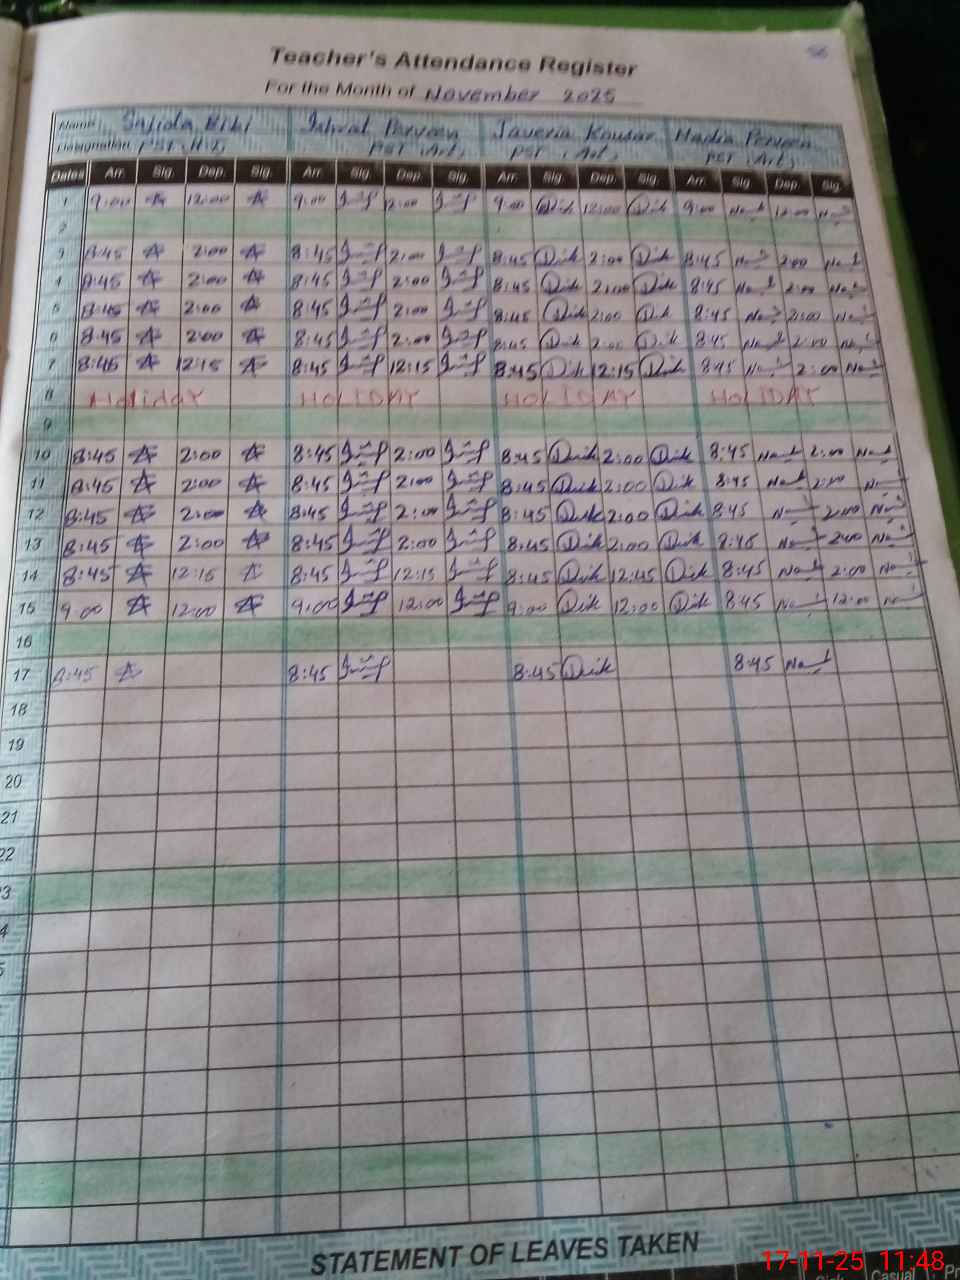 56
Teacher's Attendance Register
For the Month of November 2025
Name Sajida Bibi Ishrat Parveen Javeria Kousar Nadia Perveen
Designation PST PST (Art) PST (Art) PST (Art)
Dates Arr. Sig. Dep. Sig. Arr. Sig. Dep. Sig. Arr. Sig. Dep. Sig. Arr. Sig. Dep. Sig.
1 9:00 12:00 9:00 12:00 9:00 12:00 9:00 12:00
2
3 8:45 2:00 8:45 2:00 8:45 2:00 8:45 2:00
4 8:45 2:00 8:45 2:00 8:45 2:00 8:45 2:00
5 8:45 2:00 8:45 2:00 8:45 2:00 8:45 2:00
6 8:45 2:00 8:45 2:00 8:45 2:00 8:45 2:00
7 8:45 12:15 8:45 12:15 8:45 12:15 8:45 2:00
8 Holiday HOLIDAY HOLIDAY HOLIDAY
9
10 8:45 2:00 8:45 2:00 8:45 2:00 8:45 2:00
11 8:45 2:00 8:45 2:00 8:45 2:00 8:45 2:00
12 8:45 2:00 8:45 2:00 8:45 2:00 8:45 2:00
13 8:45 2:00 8:45 2:00 8:45 2:00 8:45 2:00
14 8:45 12:15 8:45 12:15 8:45 12:45 8:45 2:00
15 9:00 12:00 9:00 12:00 9:00 12:00 8:45 12:00
16
17 8:45 8:45 8:45 8:45
18
19
20
21
22
3
4
5
STATEMENT OF LEAVES TAKEN
Casual
17-11-25 11:48